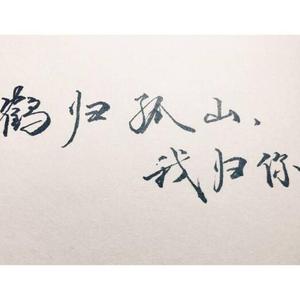 鹤归孤山、
我归你